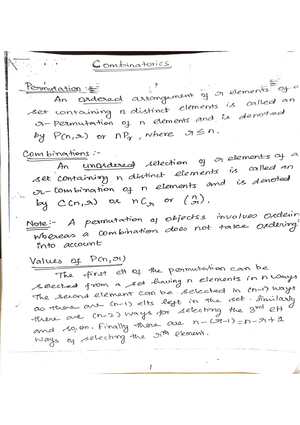 Combinatorics
Permutation :-
An ordered arrangement of r elements of a
set containing n distinct elements is called an
r- Permutation of n elements and is denoted
by P(n,r) or nPr, where r ≤ n.
Combinations :-
An unordered selection of r elements of a
set containing n distinct elements is called an
r- Combination of n elements and is denoted
by C(n,r) or nCr or (n r).
Note:- A permutation of objects involves orderin
whereas a combination does not take ordering
into account
Values of P(n,r)
The first elt of the permutation can be
selected from a set having n elements in n ways
The second element can be selected in (n-1) ways
as there are (n-1) elts left in the set. Similarly
there are (n-2) ways for selecting the 3rd elt
and so, on. Finally there are n-(r-1)=n-r+1
ways of selecting the rth element.
1